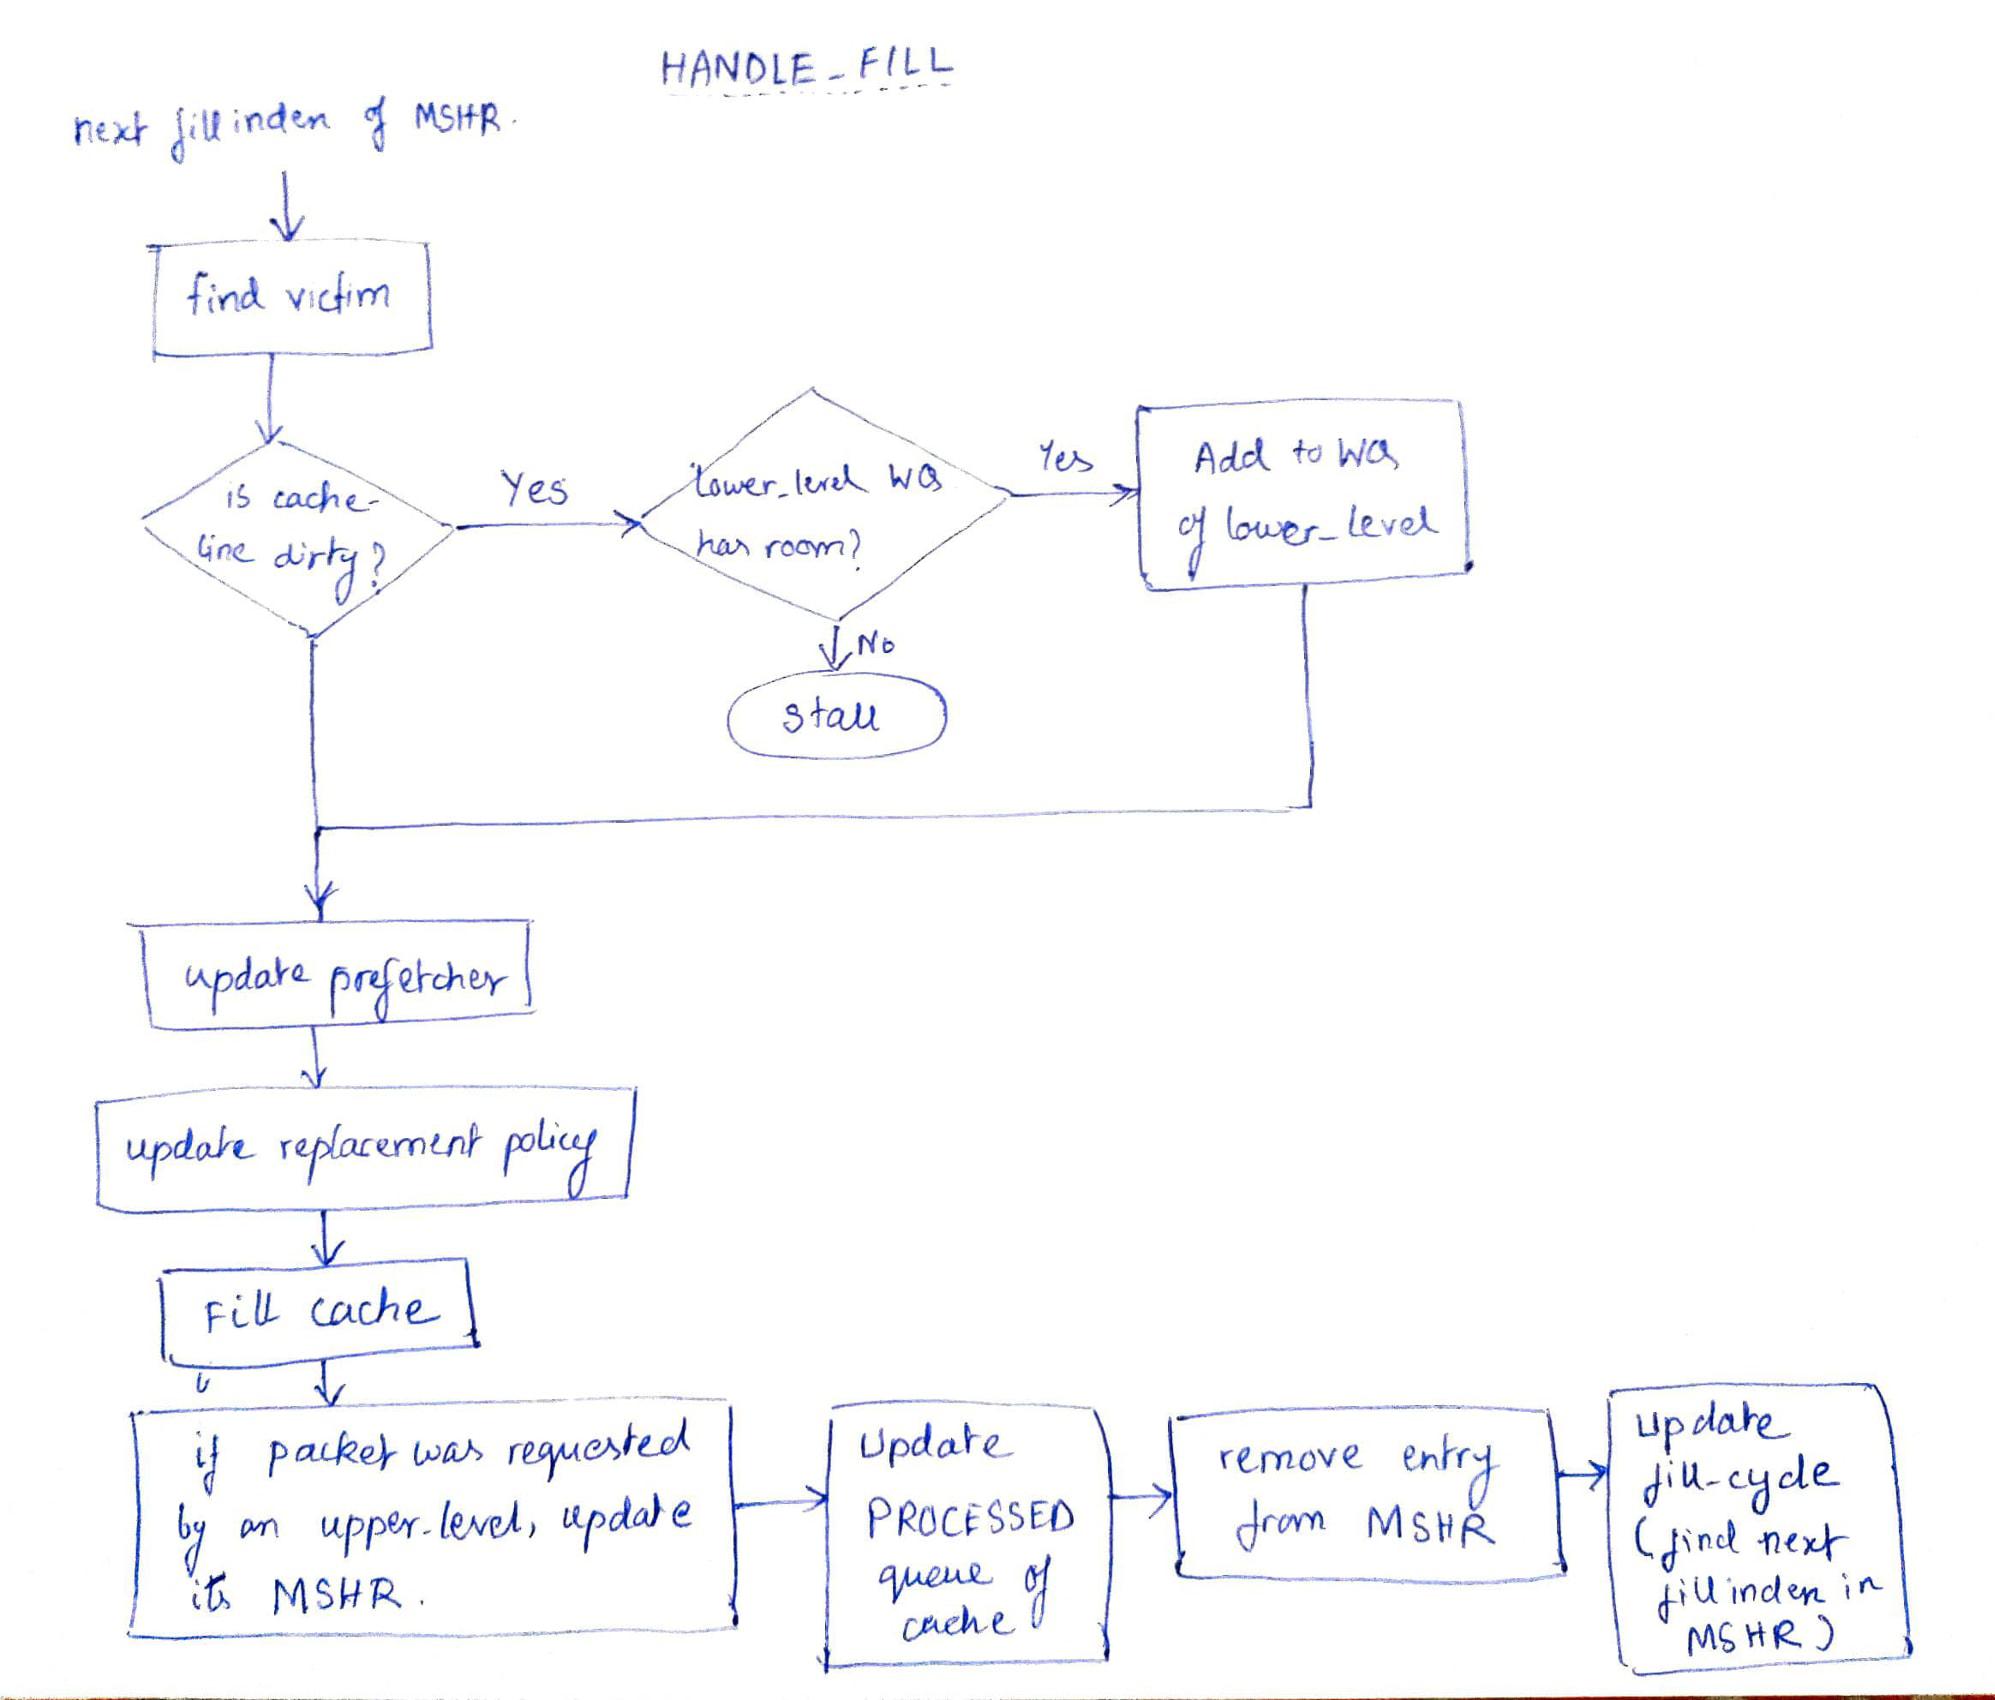 HANDLE_FILL
next fill index of MSHR.
find victim
is cache-
line dirty?
Yes
lower_level WQ
has room?
Yes
Add to WQ
of lower_level
No
stall
update prefetcher
update replacement policy
Fill cache
if packet was requested
by an upper-level, update
its MSHR.
Update
PROCESSED
queue of
cache
remove entry
from MSHR
update
fill-cycle
(find next
fill index in
MSHR)